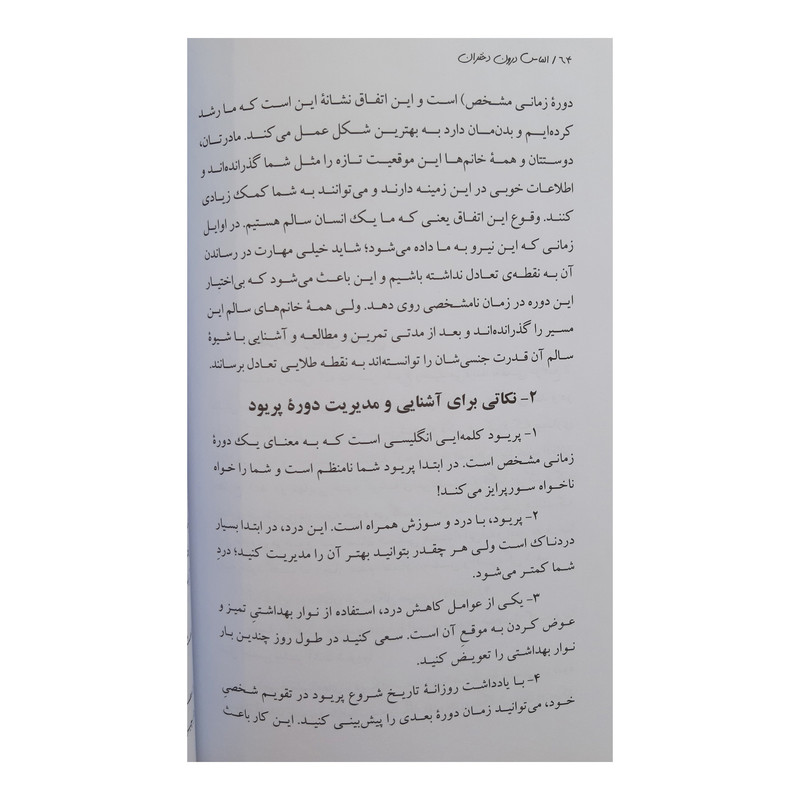 ۶۴ / الماس درون دختران
دورهٔ زمانی مشخص) است و این اتفاق نشانهٔ این است که ما رشد
کرده‌ایم و بدن‌مان دارد به بهترین شکل عمل می‌کند. مادرتان،
دوستتان و همهٔ خانم‌ها این موقعیت تازه را مثل شما گذرانده‌اند و
اطلاعات خوبی در این زمینه دارند و می‌توانند به شما کمک زیادی
کنند. وقوع این اتفاق یعنی که ما یک انسان سالم هستیم. در اوایل
زمانی که این نیرو به ما داده می‌شود؛ شاید خیلی مهارت در رساندن
آن به نقطه‌ی تعادل نداشته باشیم و این باعث می‌شود که بی‌اختیار
این دوره در زمان نامشخصی روی دهد. ولی همهٔ خانم‌های سالم این
مسیر را گذرانده‌اند و بعد از مدتی تمرین و مطالعه و آشنایی با شیوهٔ
سالم آن قدرت جنسی‌شان را توانسته‌اند به نقطه طلایی تعادل برسانند.
۲- نکاتی برای آشنایی و مدیریت دورهٔ پریود
۱- پریود کلمه‌ایی انگلیسی است که به معنای یک دورهٔ
زمانی مشخص است. در ابتدا پریود شما نامنظم است و شما را خواه
ناخواه سورپرایز می‌کند!
۲- پریود، با درد و سوزش همراه است. این درد، در ابتدا بسیار
دردناک است ولی هر چقدر بتوانید بهتر آن را مدیریت کنید؛ دردِ
شما کمتر می‌شود.
۳- یکی از عوامل کاهش درد، استفاده از نوار بهداشتیِ تمیز و
عوض کردن به موقعِ آن است. سعی کنید در طول روز چندین بار
نوار بهداشتی را تعویض کنید.
۴- با یادداشت روزانهٔ تاریخ شروع پریود در تقویم شخصیِ
خود، می‌توانید زمان دورهٔ بعدی را پیش‌بینی کنید. این کار باعث